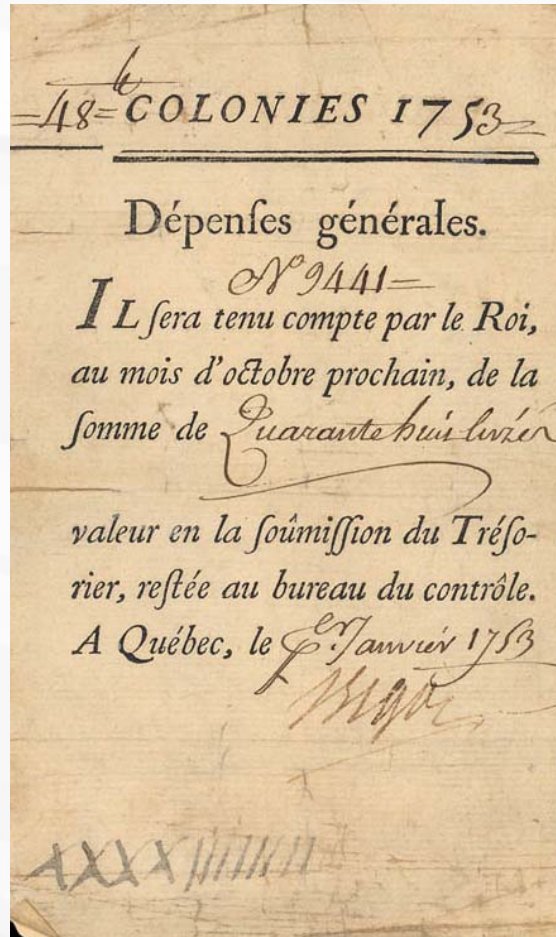 =48=
COLONIES 1753
Dépenſes générales.
N.º 9441=
IL ſera tenu compte par le Roi,
au mois d'octobre prochain, de la
ſomme de Quarante huit livres
valeur en la ſoûmiſſion du Tréſo-
rier, reſtée au bureau du contrôle.
A Québec, le Janvier 1753
Bigot
XXXX